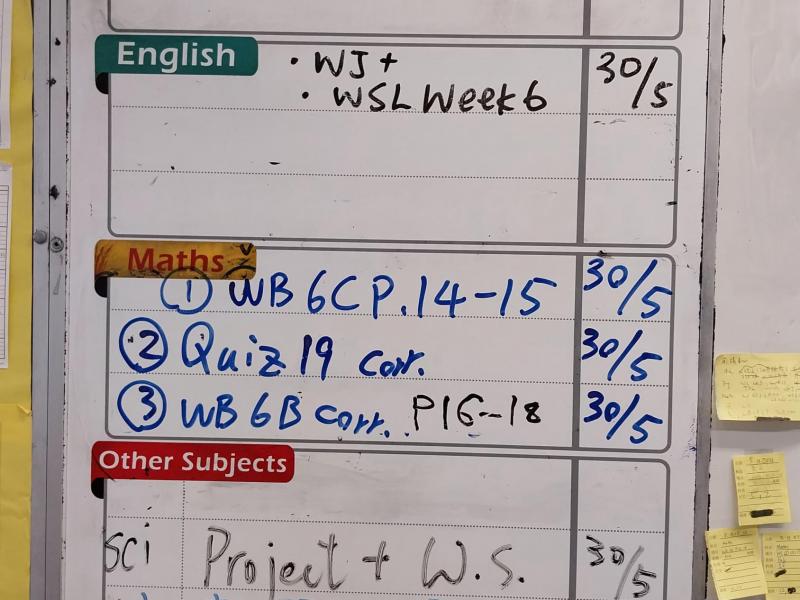 English
• WJ+ 30/5
• WSL Week 6
Maths
① WB 6C P.14-15 30/5
② Quiz 19 corr. 30/5
③ WB 6B corr. P16-18 30/5
Other Subjects
Sci Project + W.S. 30/5